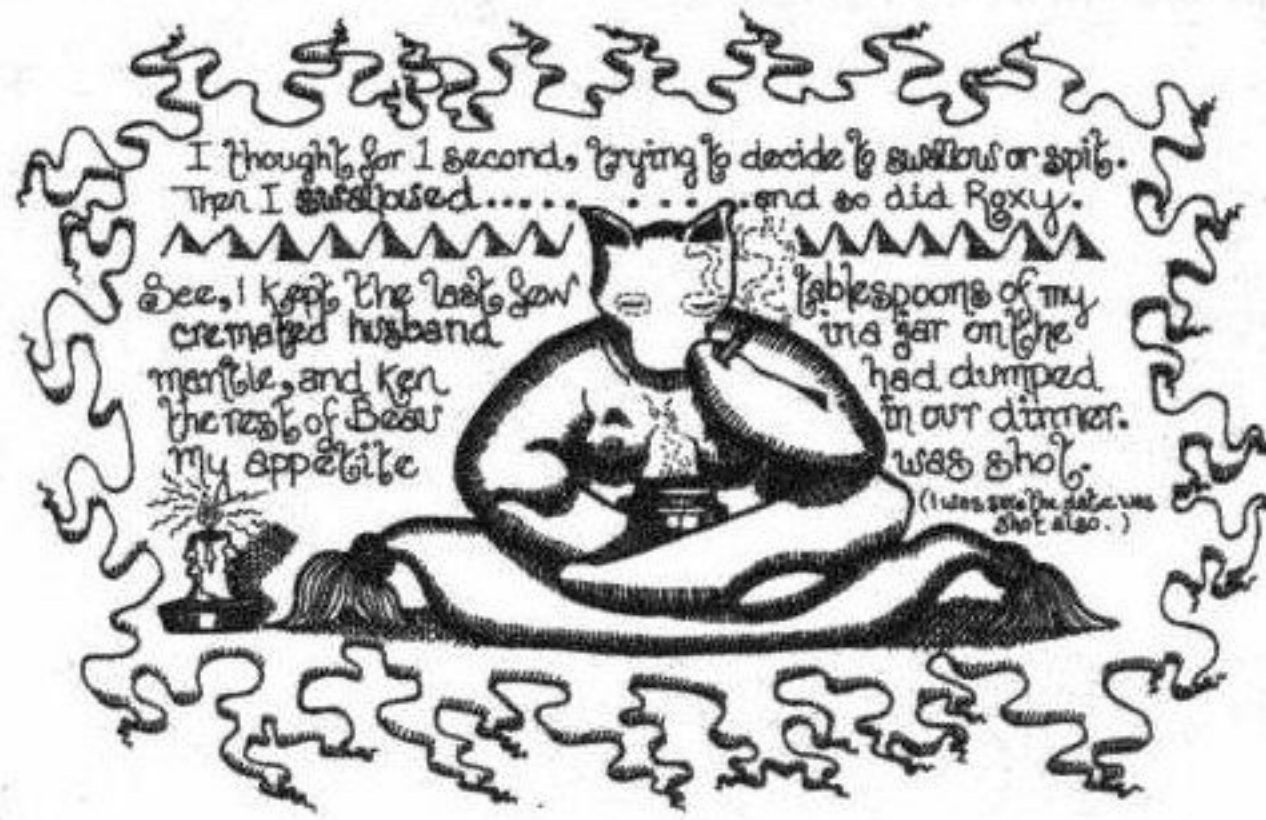 I thought for 1 second, trying to decide to swallow or spit.
Then I swallowed..... . . . .and so did Roxy.
See, I kept the last few tablespoons of my
cremated husband in a jar on the
mantle, and Ken had dumped
the rest of Beau in our dinner.
My appetite was shot.
(I was sure the date was
shot also.)